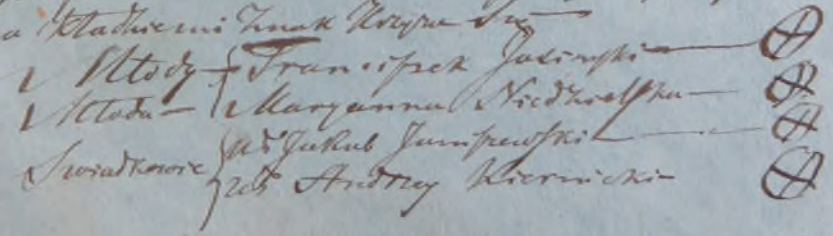 a Kładziemi Znak Krzyża Sgo
Młody Franciszek Jasinski
Młoda Maryanna Niedzielska
Swiadkowie Jakub Janiszewski
Andrzey Kiernicki